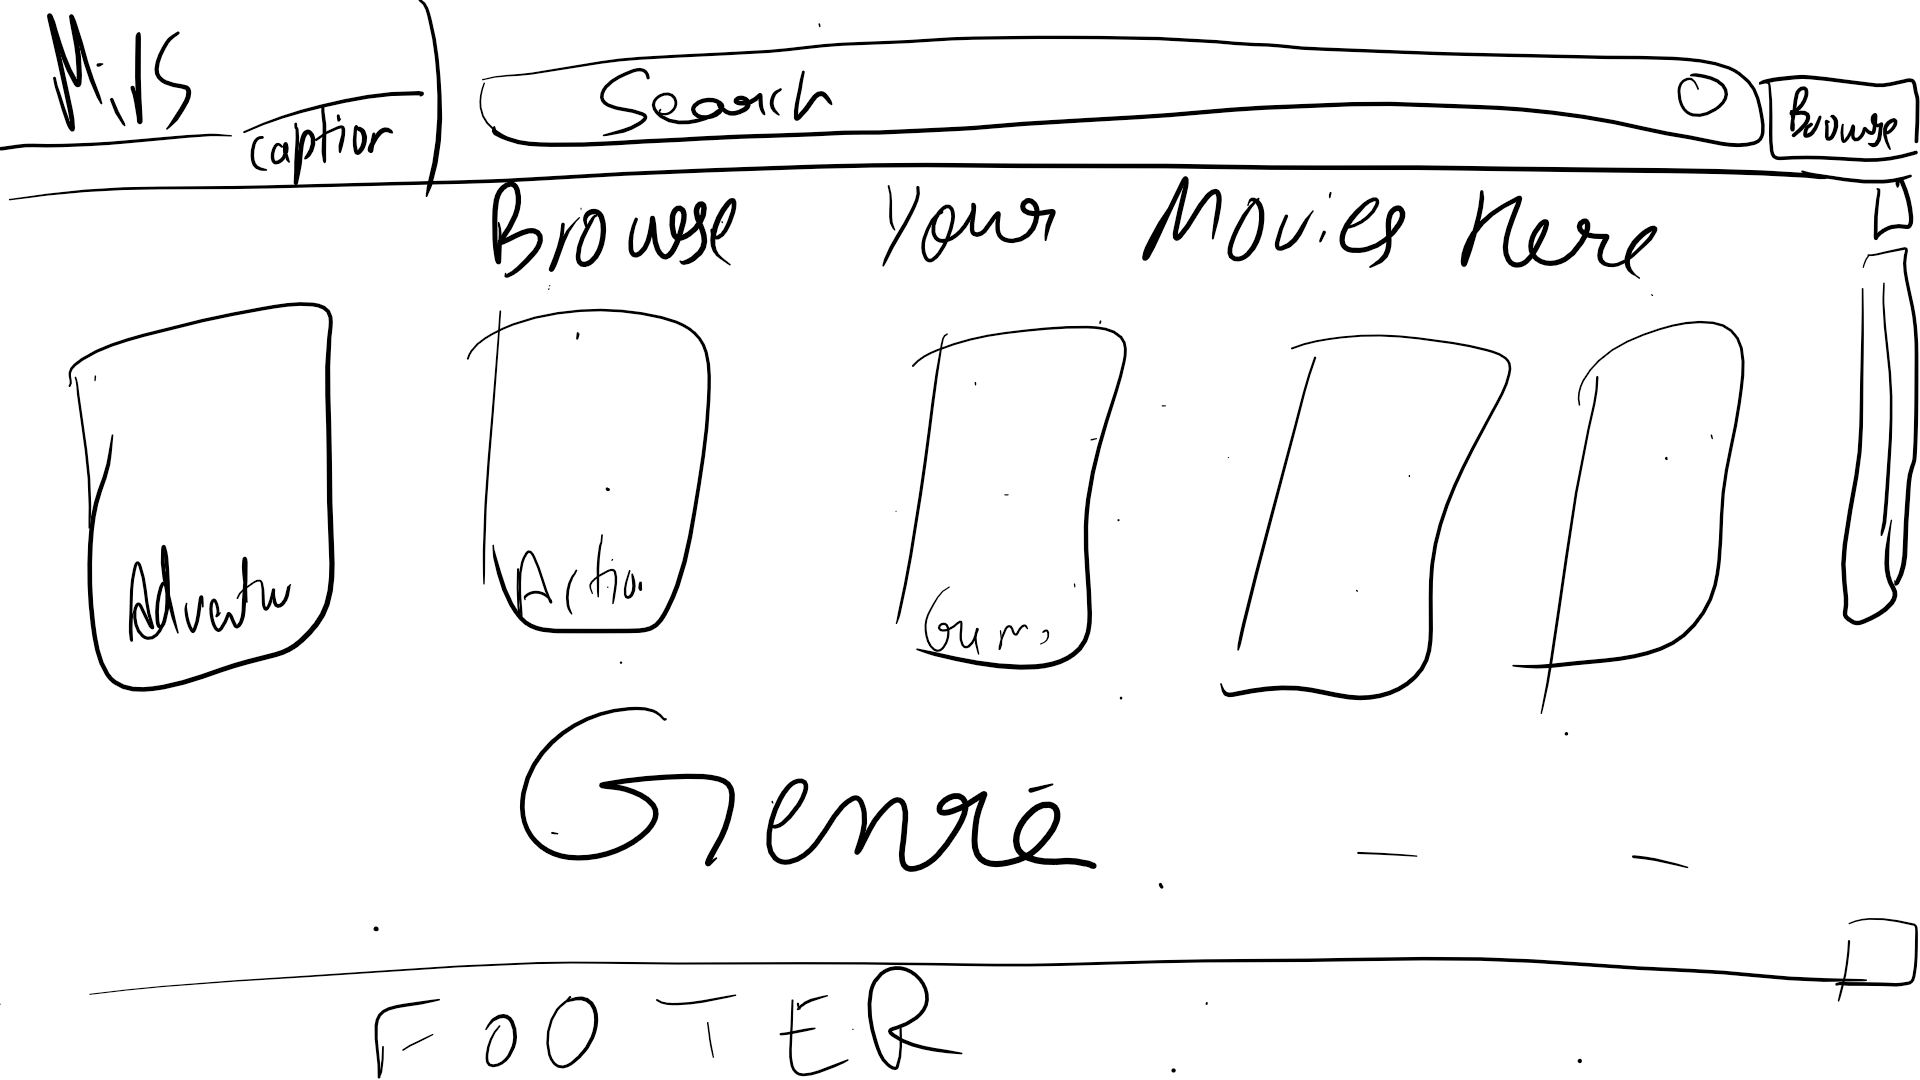 caption
Search
Browse
Browse Your Movies Here
Adventu
Actio
Genre
FOOTER